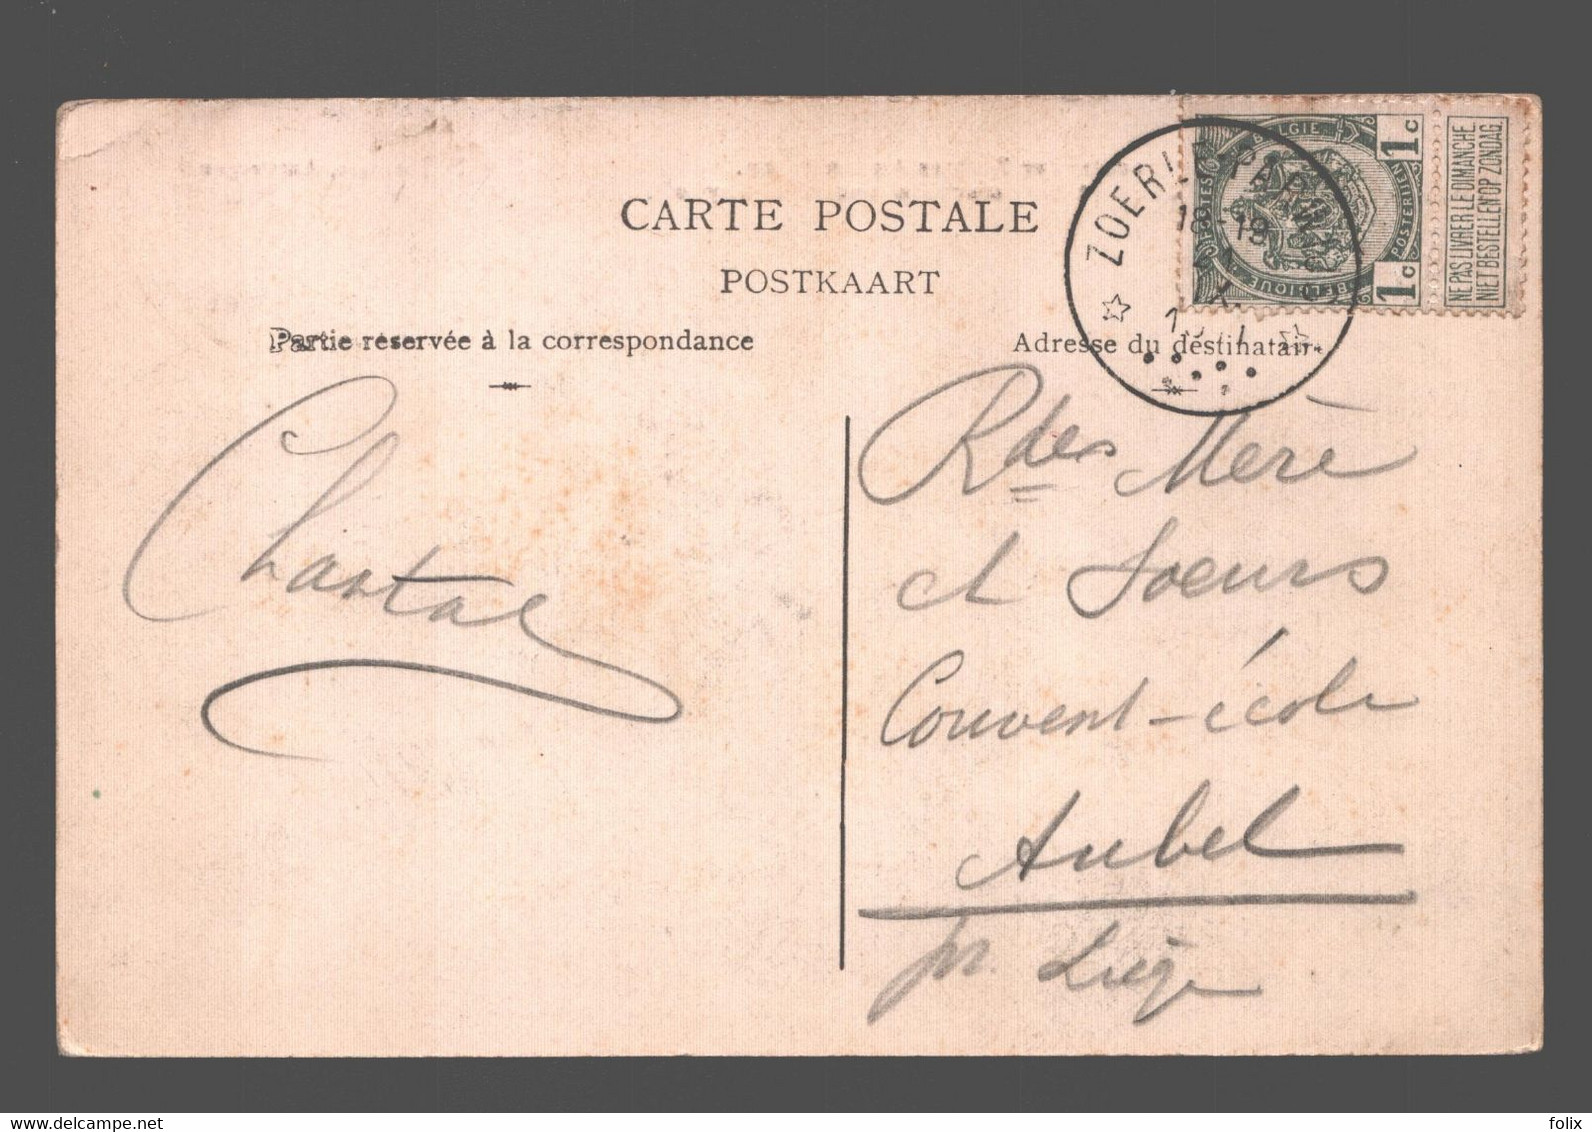 CARTE POSTALE
POSTKAART
Partie reservée à la correspondance
Adresse du destinatair
BELGIE
POSTES
POSTERIJEN
BELGIQUE
1c
1c
NE PAS LIVRER LE DIMANCHE
NIET BESTELLEN OP ZONDAG.
ZOERLE-PARW
18-19
X
Chantal
Rdes Mère
et Soeurs
Couvent-école
Aubel
pr. Liège
delcampe.net
folix